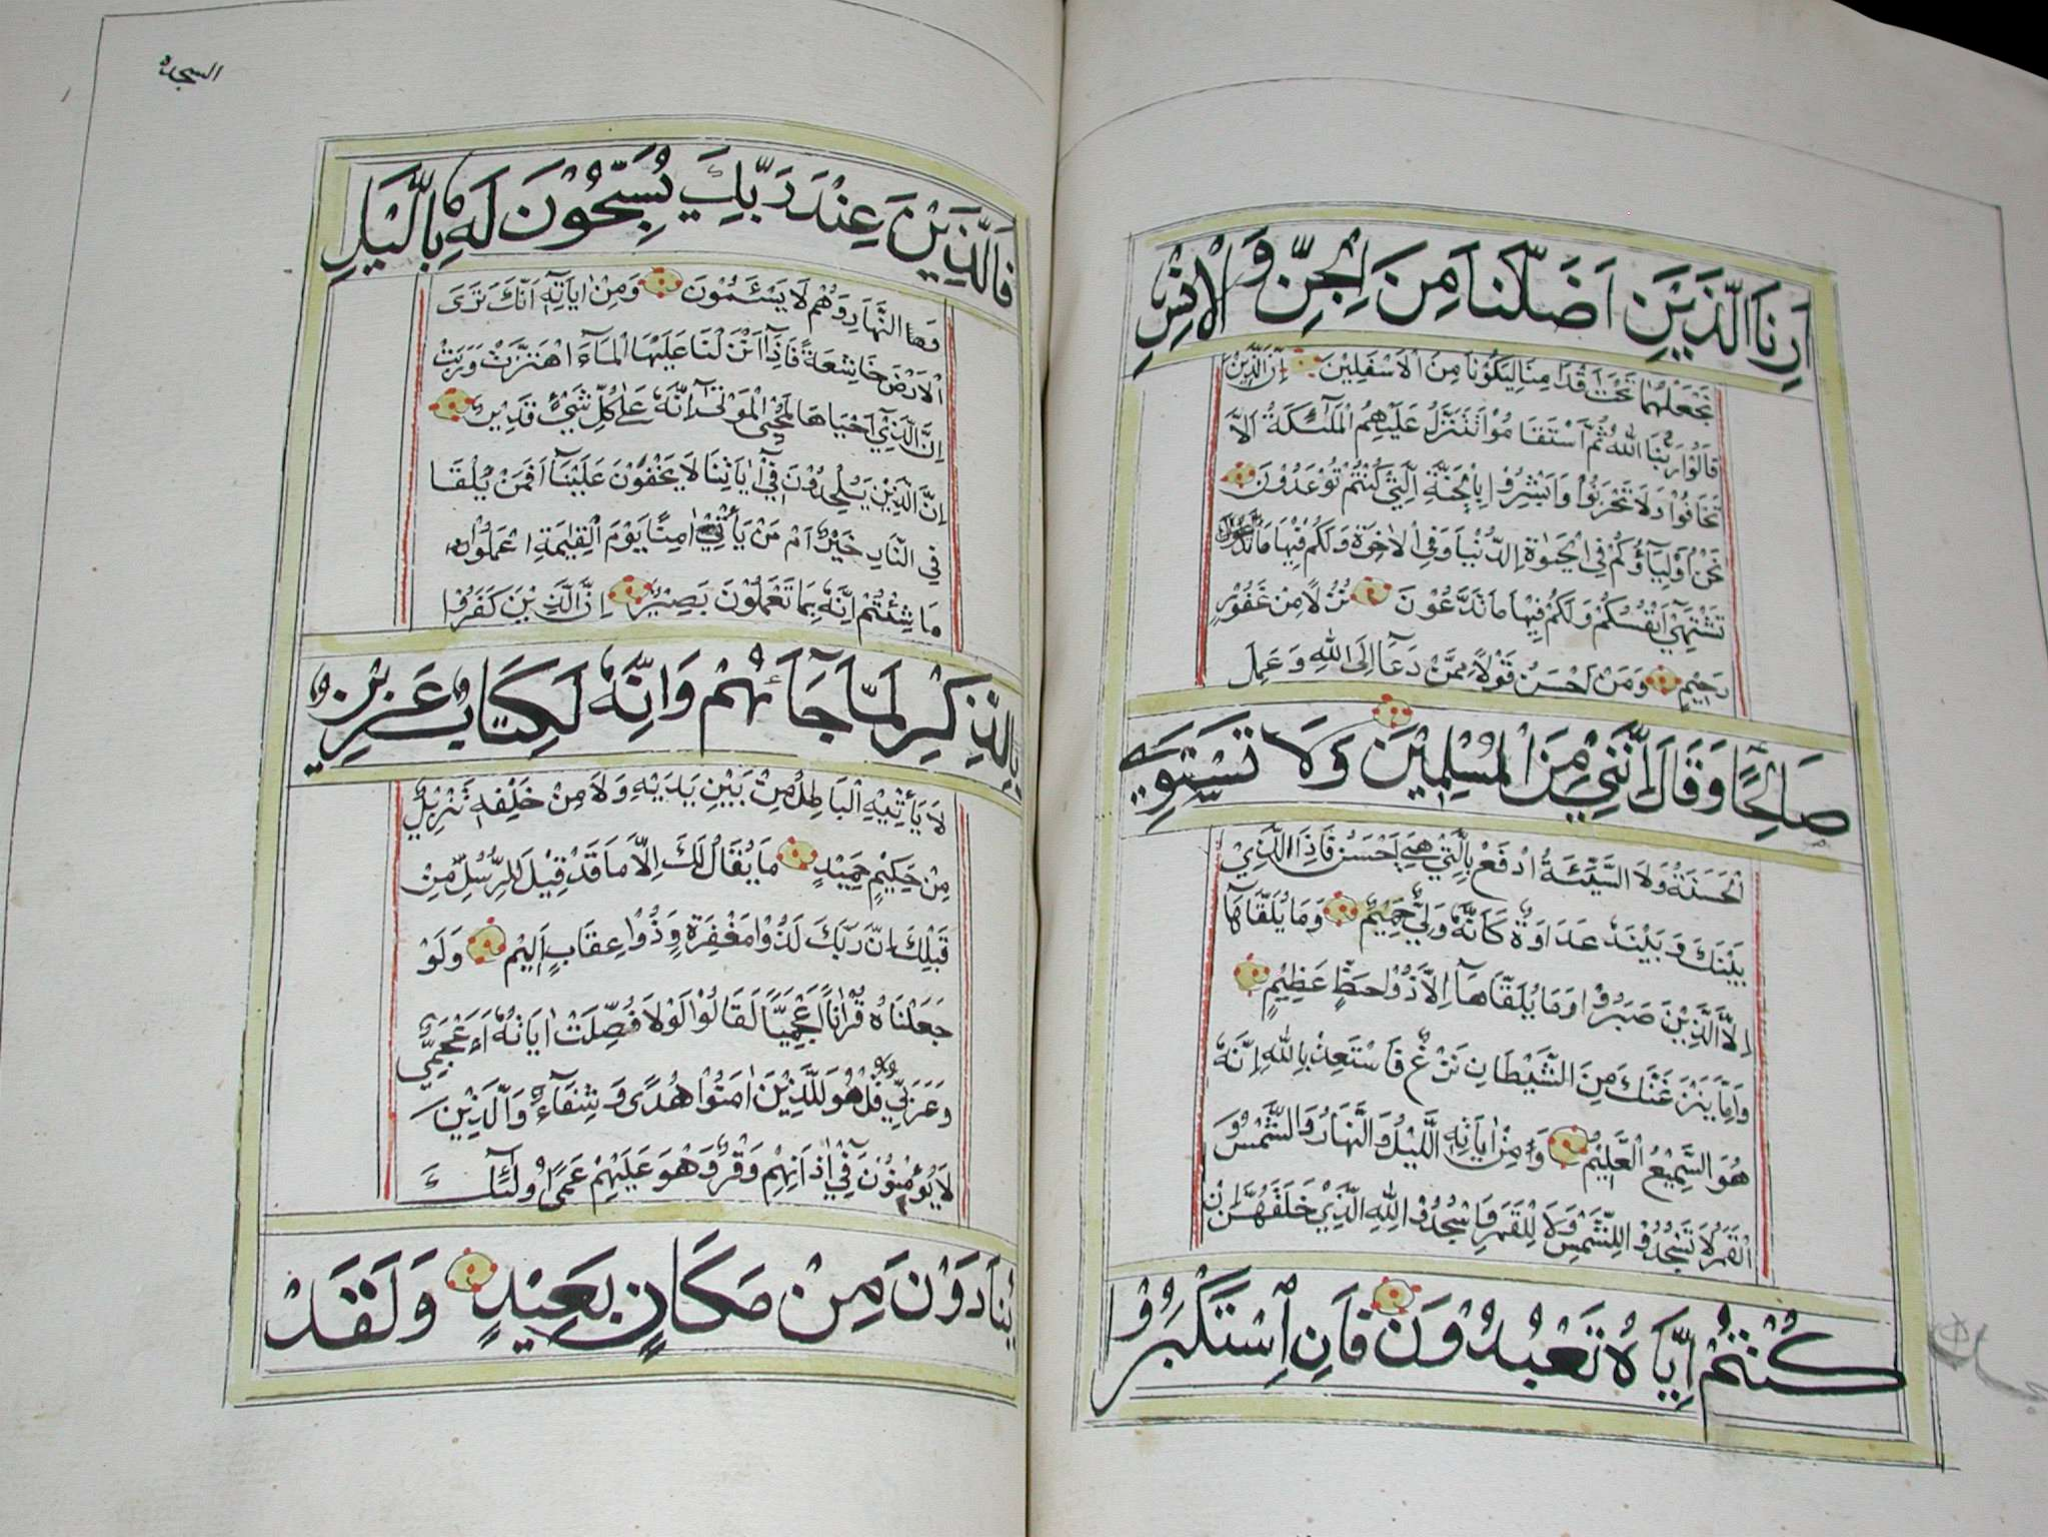 اَرِنَا الَّذَيْنِ اَضَلَّنَا مِنَ الْجِنِّ وَالْاِنْسِ
نَجْعَلْهُمَا تَحْتَ اَقْدَامِنَا لِيَكُوْنَا مِنَ الْاَسْفَلِيْنَ اِنَّ الَّذِيْنَ
قَالُوْا رَبُّنَا اللّٰهُ ثُمَّ اسْتَقَامُوْا تَتَنَزَّلُ عَلَيْهِمُ الْمَلٰٓئِكَةُ اَلَّا
تَخَافُوْا وَلَا تَحْزَنُوْا وَاَبْشِرُوْا بِالْجَنَّةِ الَّتِيْ كُنْتُمْ تُوْعَدُوْنَ
نَحْنُ اَوْلِيَآؤُكُمْ فِي الْحَيٰوةِ الدُّنْيَا وَفِي الْاٰخِرَةِ وَلَكُمْ فِيْهَا مَا تَدَّعُوْنَ
تَشْتَهِيْ اَنْفُسُكُمْ وَلَكُمْ فِيْهَا مَا تَدَّعُوْنَ نُزُلًا مِنْ غَفُوْرٍ
رَحِيْمٍ وَمَنْ اَحْسَنُ قَوْلًا مِمَّنْ دَعَآ اِلَى اللّٰهِ وَعَمِلَ
صَالِحًا وَقَالَ اِنَّنِيْ مِنَ الْمُسْلِمِيْنَ وَلَا تَسْتَوِي
الْحَسَنَةُ وَلَا السَّيِّئَةُ اِدْفَعْ بِالَّتِيْ هِيَ اَحْسَنُ فَاِذَا الَّذِيْ
بَيْنَكَ وَبَيْنَهٗ عَدَاوَةٌ كَاَنَّهٗ وَلِيٌّ حَمِيْمٌ وَمَا يُلَقَّاهَآ
اِلَّا الَّذِيْنَ صَبَرُوْا وَمَا يُلَقَّاهَآ اِلَّا ذُوْ حَظٍّ عَظِيْمٍ
وَاِمَّا يَنْزَغَنَّكَ مِنَ الشَّيْطَانِ نَزْغٌ فَاسْتَعِذْ بِاللّٰهِ اِنَّهٗ
هُوَ السَّمِيْعُ الْعَلِيْمُ وَمِنْ اٰيَاتِهِ الَّيْلُ وَالنَّهَارُ وَالشَّمْسُ وَ
الْقَمَرُ لَا تَسْجُدُوْا لِلشَّمْسِ وَلَا لِلْقَمَرِ وَاسْجُدُوْا لِلّٰهِ الَّذِيْ خَلَقَهُنَّ اِنْ
كُنْتُمْ اِيَّاهُ تَعْبُدُوْنَ فَاِنِ اسْتَكْبَرُوْا
السجده
فَالَّذِيْنَ عِنْدَ رَبِّكَ يُسَبِّحُوْنَ لَهٗ بِالَّيْلِ
وَالنَّهَارِ وَهُمْ لَا يَسْئَمُوْنَ وَمِنْ اٰيَاتِهٖ اَنَّكَ تَرَى
الْاَرْضَ خَاشِعَةً فَاِذَآ اَنْزَلْنَا عَلَيْهَا الْمَآءَ اهْتَزَّتْ وَرَبَتْ
اِنَّ الَّذِيْ اَحْيَاهَا لَمُحْيِ الْمَوْتٰى اِنَّهٗ عَلٰى كُلِّ شَيْءٍ قَدِيْرٌ
اِنَّ الَّذِيْنَ يُلْحِدُوْنَ فِيْ اٰيَاتِنَا لَا يَخْفَوْنَ عَلَيْنَا اَفَمَنْ يُلْقَا
فِي النَّارِ خَيْرٌ اَمْ مَنْ يَأْتِيْ اٰمِنًا يَوْمَ الْقِيٰمَةِ اعْمَلُوْا
مَا شِئْتُمْ اِنَّهٗ بِمَا تَعْمَلُوْنَ بَصِيْرٌ اِنَّ الَّذِيْنَ كَفَرُوْا
بِالذِّكْرِ لَمَّا جَآءَهُمْ وَاِنَّهٗ لَكِتَابٌ عَزِيْزٌ
لَا يَأْتِيْهِ الْبَاطِلُ مِنْ بَيْنِ يَدَيْهِ وَلَا مِنْ خَلْفِهٖ تَنْزِيْلٌ
مِنْ حَكِيْمٍ حَمِيْدٍ مَا يُقَالُ لَكَ اِلَّا مَا قَدْ قِيْلَ لِلرُّسُلِ مِنْ
قَبْلِكَ اِنَّ رَبَّكَ لَذُوْا مَغْفِرَةٍ وَذُوْا عِقَابٍ اَلِيْمٍ وَلَوْ
جَعَلْنَاهُ قُرْاٰنًا اَعْجَمِيًّا لَقَالُوْا لَوْلَا فُصِّلَتْ اٰيَاتُهٗ ءَاَعْجَمِيٌّ
وَعَرَبِيٌّ قُلْ هُوَ لِلَّذِيْنَ اٰمَنُوْا هُدًى وَشِفَآءٌ وَالَّذِيْنَ
لَا يُؤْمِنُوْنَ فِيْ اٰذَانِهِمْ وَقْرٌ وَهُوَ عَلَيْهِمْ عَمًى اُولٰٓئِكَ
يُنَادَوْنَ مِنْ مَكَانٍ بَعِيْدٍ وَلَقَدْ